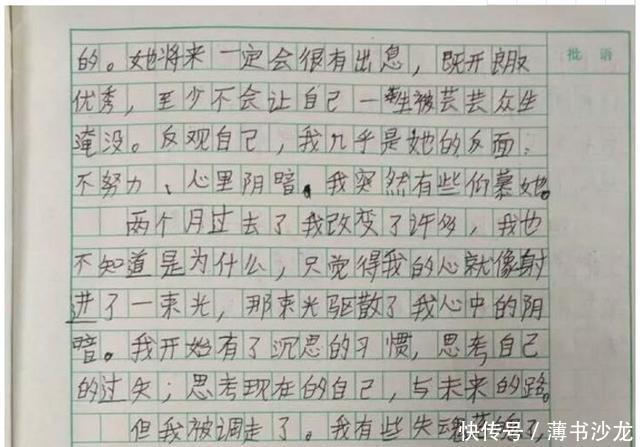 批语
的。她将来一定会很有出息，既开朗又
优秀，至少不会让自己一生被芸芸众生
淹没。反观自己，我几乎是她的反面：
不努力、心里阴暗。我突然有些仰慕她。
两个月过去了我改变了许多，我也
不知道是为什么，只觉得我的心就像射
进了一束光，那束光驱散了我心中的阴
暗。我开始有了沉思的习惯，思考自己
的过失；思考现在的自己，与未来的路。
但我被调走了。我有些失魂
快传号／薄书沙龙